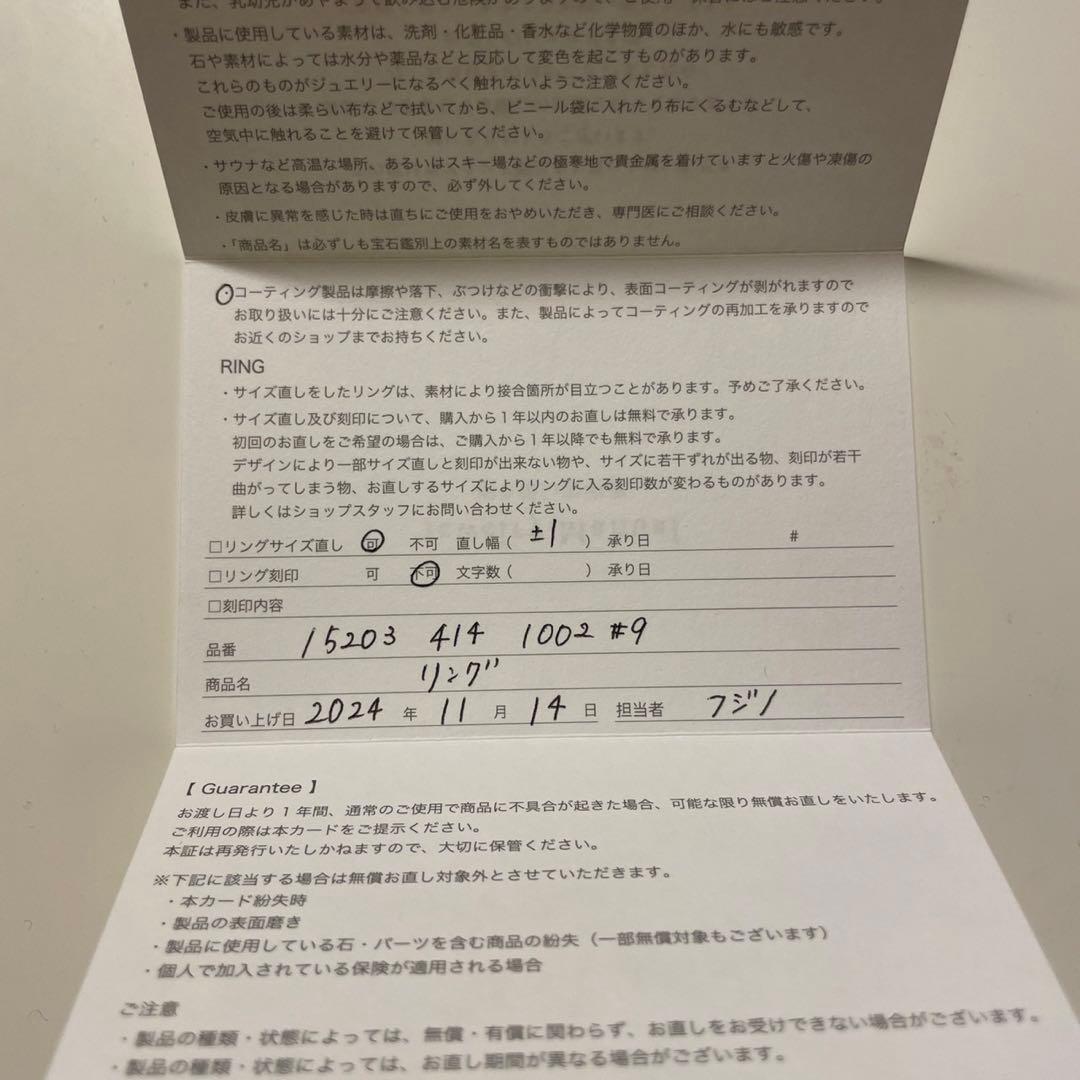 また、乳幼児があやまって飲み込む危険がありますので、ご使用・保管にはご注意ください。
・製品に使用している素材は、洗剤・化粧品・香水など化学物質のほか、水にも敏感です。
石や素材によっては水分や薬品などと反応して変色を起こすものがあります。
これらのものがジュエリーになるべく触れないようご注意ください。
ご使用の後は柔らい布などで拭いてから、ビニール袋に入れたり布にくるむなどして、
空気中に触れることを避けて保管してください。
・サウナなど高温な場所、あるいはスキー場などの極寒地で貴金属を着けていますと火傷や凍傷の
原因となる場合がありますので、必ず外してください。
・皮膚に異常を感じた時は直ちにご使用をおやめいただき、専門医にご相談ください。
・「商品名」は必ずしも宝石鑑別上の素材名を表すものではありません。
・コーティング製品は摩擦や落下、ぶつけなどの衝撃により、表面コーティングが剥がれますので
お取り扱いには十分にご注意ください。また、製品によってコーティングの再加工を承りますので
お近くのショップまでお持ちください。
RING
・サイズ直しをしたリングは、素材により接合箇所が目立つことがあります。予めご了承ください。
・サイズ直し及び刻印について、購入から1年以内のお直しは無料で承ります。
初回のお直しをご希望の場合は、ご購入から1年以降でも無料で承ります。
デザインにより一部サイズ直しと刻印が出来ない物や、サイズに若干ずれが出る物、刻印が若干
曲がってしまう物、お直しするサイズによりリングに入る刻印数が変わるものがあります。
詳しくはショップスタッフにお問い合わせください。
□リングサイズ直し 可 不可 直し幅( ±1 ) 承り日 #
□リング刻印 可 不可 文字数( ) 承り日
□刻印内容
品番 15203 414 1002 #9
商品名 リング
お買い上げ日 2024 年 11 月 14 日 担当者 フジノ
【 Guarantee 】
お渡し日より1年間、通常のご使用で商品に不具合が起きた場合、可能な限り無償お直しをいたします。
ご利用の際は本カードをご提示ください。
本証は再発行いたしかねますので、大切に保管ください。
※下記に該当する場合は無償お直し対象外とさせていただきます。
・本カード紛失時
・製品の表面磨き
・製品に使用している石・パーツを含む商品の紛失（一部無償対象もございます）
・個人で加入されている保険が適用される場合
ご注意
・製品の種類・状態によっては、無償・有償に関わらず、お直しをお受けできない場合がございます。
・製品の種類・状態によっては、お直し期間が異なる場合がございます。